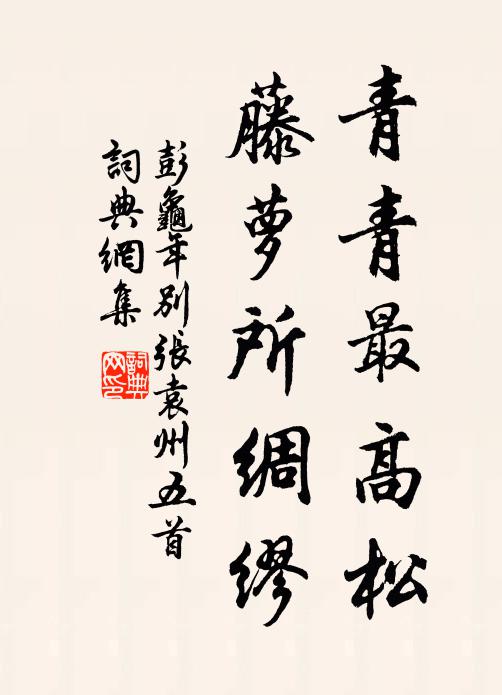 青青最高松
藤萝所綢繆
彭龜年别張袁州五首
詞典網集
詞典網印